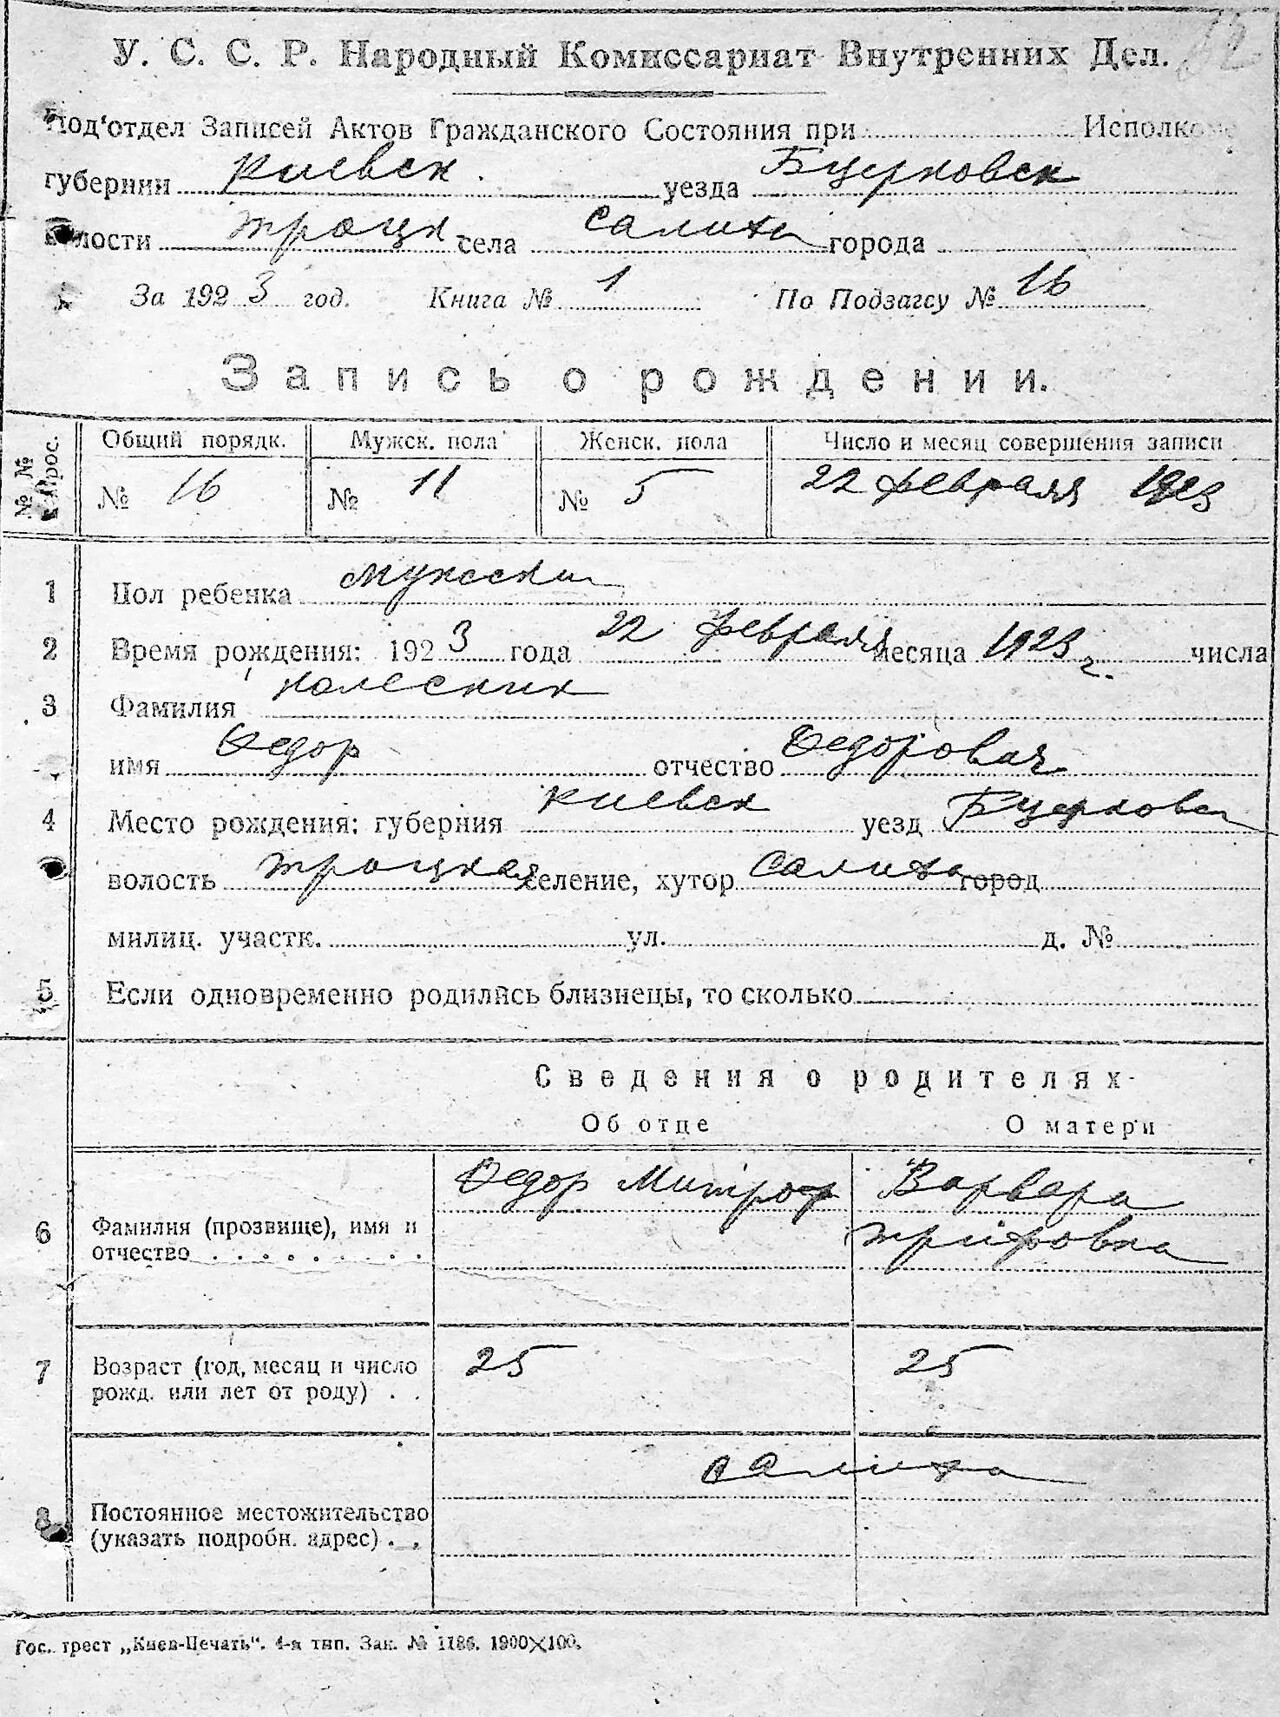 У. С. С. Р. Народный Комиссариат Внутренних Дел.
Под'отдел Записей Актов Гражданского Состояния при Исполком
губернии Киевск. уезда Бцерковск
волости Троцк. села Салиха города
За 1923 год. Книга № 1 По Подзагсу № 16
Запись о рождении.
№ № Общий порядк. Мужск. пола Женск. пола Число и месяц совершения записи
№ 16 № 11 № 5 22 февраля 1923
1 Пол ребенка мужеский
2 Время рождения: 1923 года 22 февраля месяца 1923 г. числа
3 Фамилия Колесник
имя Федор отчество Федорович
4 Место рождения: губерния Киевск уезд Бцерковск
волость Троцкая селение, хутор Салиха город
милиц. участк. ул. д. №
5 Если одновременно родились близнецы, то сколько
Сведения о родителях
Об отце О матери
Федор Митроф Варвара
6 Фамилия (прозвище), имя и Трифовна
отчество
7 Возраст (год, месяц и число 25 25
рожд. или лет от роду)
Салиха
8 Постоянное местожительство
(указать подробн. адрес)
Гос. трест „Киев-Печать“. 4-я тип. Зак. № 1186. 1900×100.